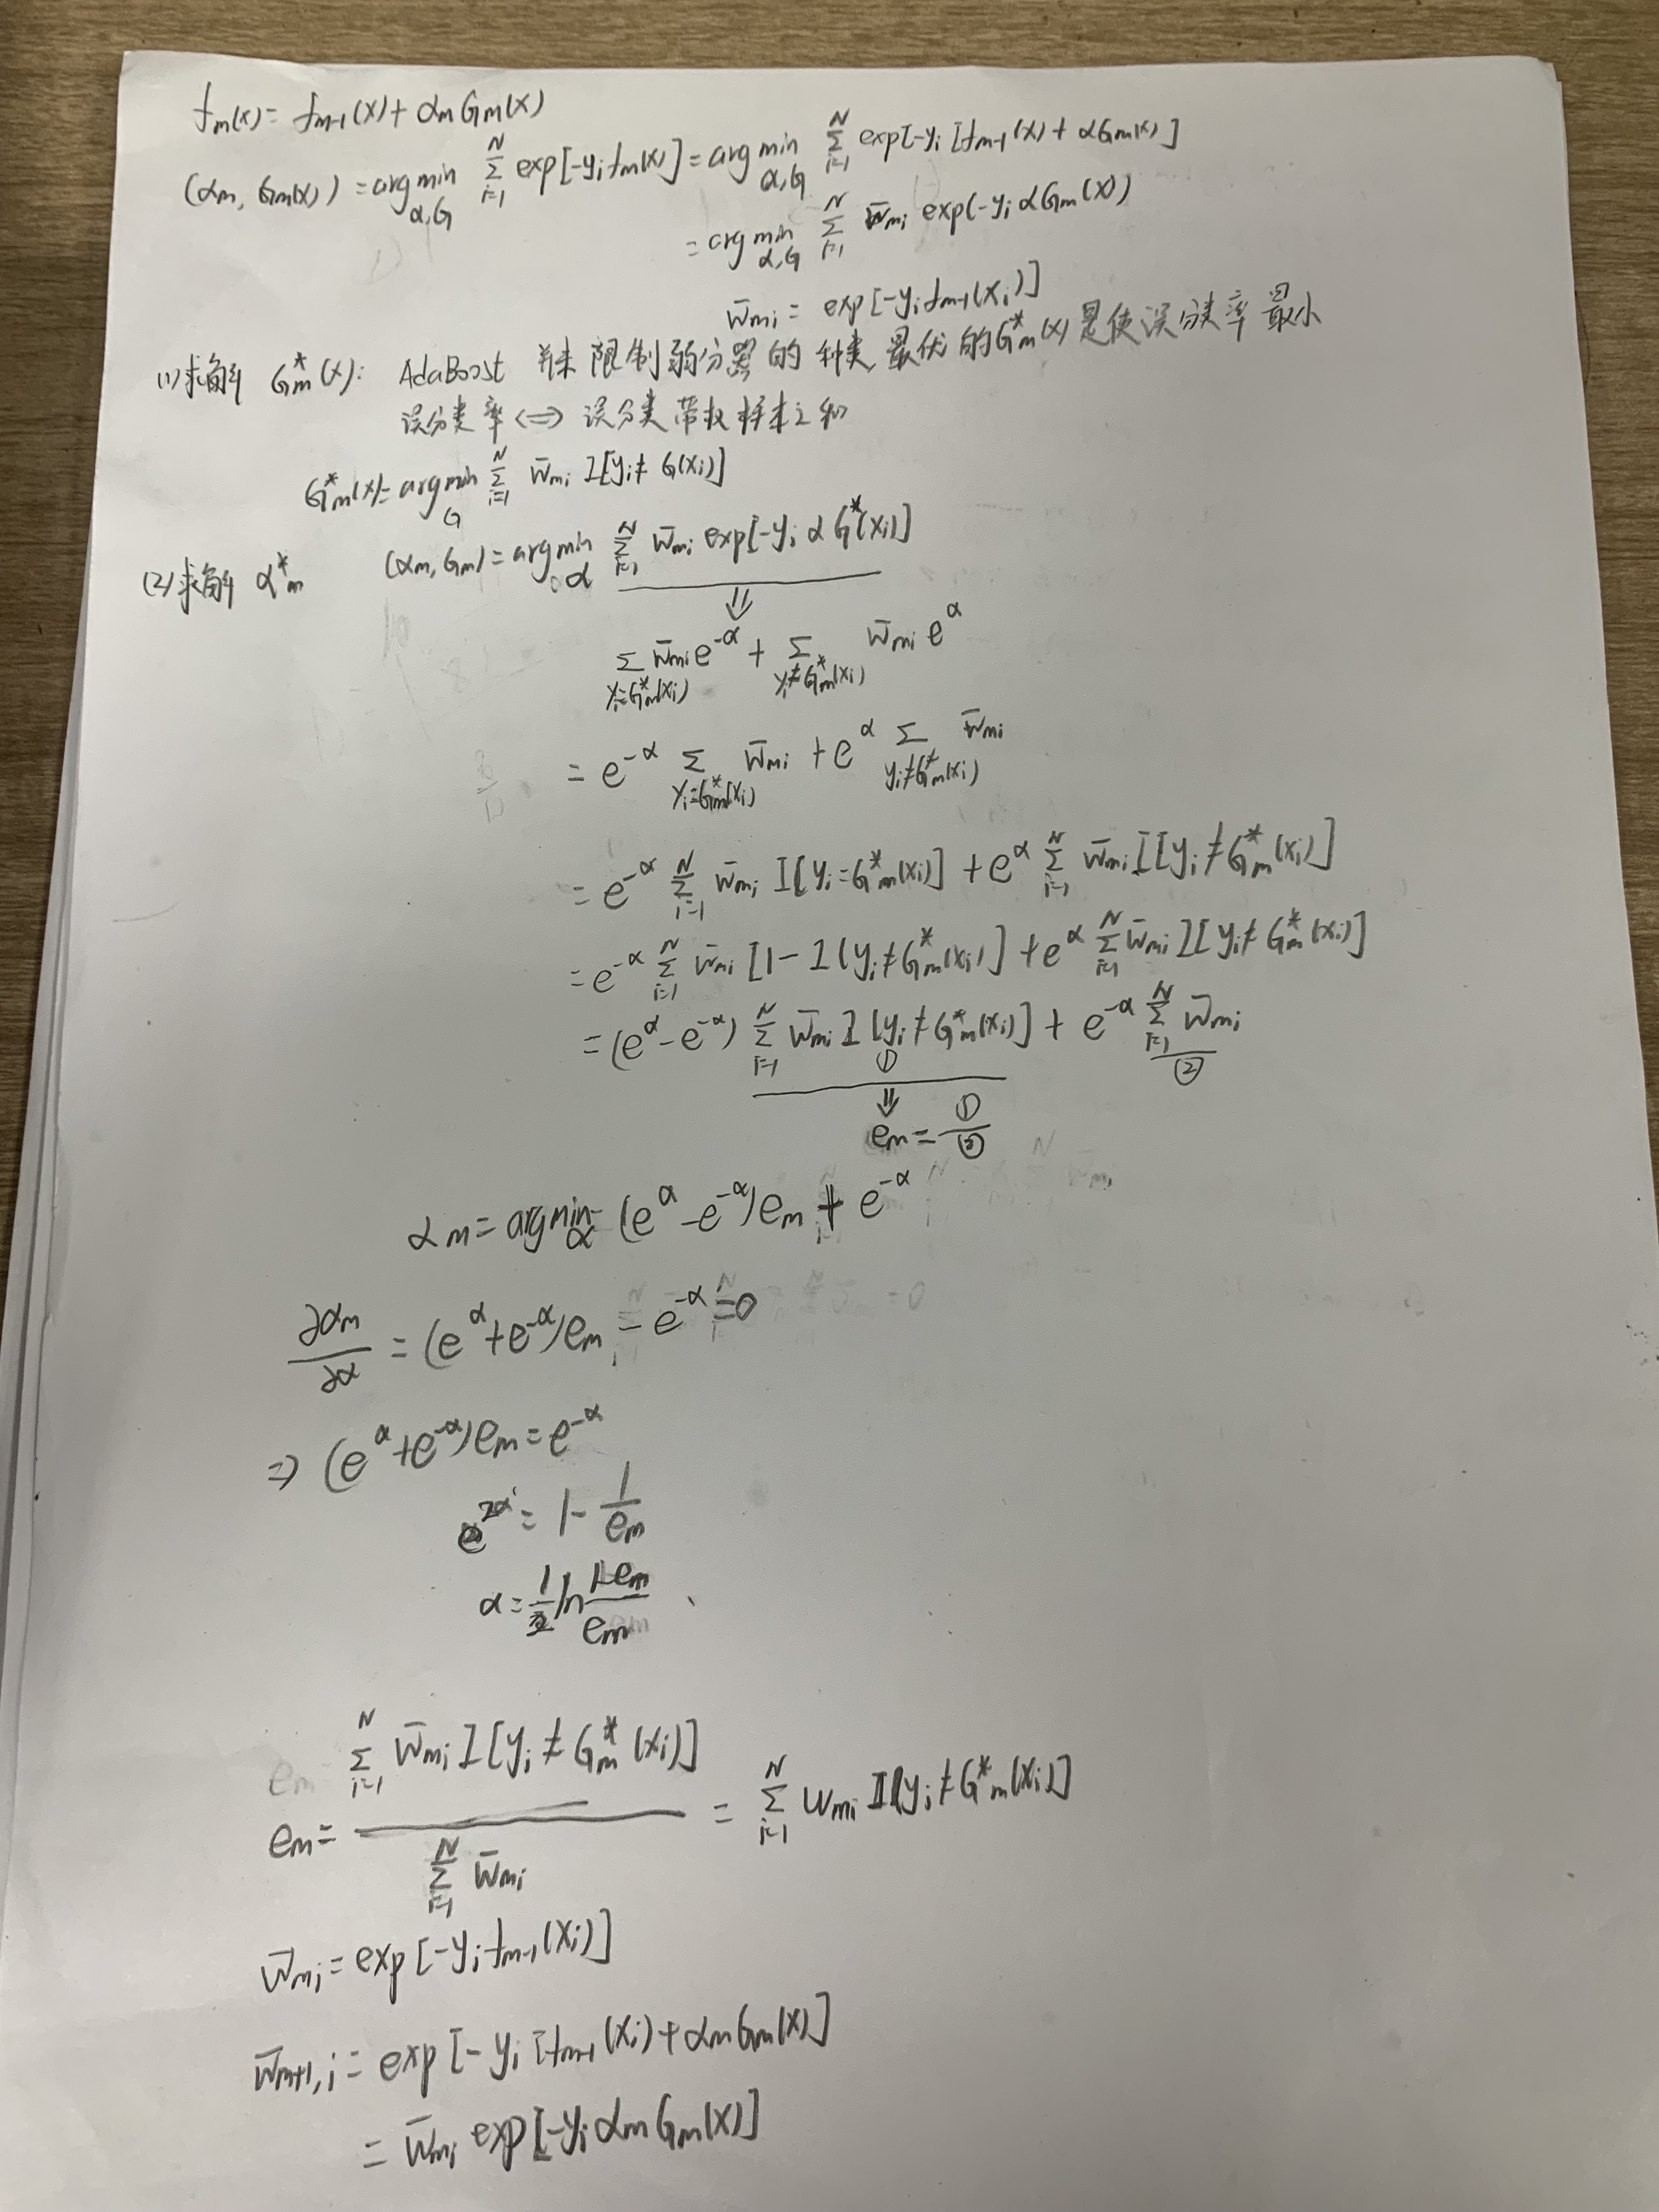 fm(x) = fm-1(x) + αm Gm(x)
(αm, Gm(x)) = arg min α,G Σ i=1 N exp[-yi fm(x)] = arg min α,G Σ i=1 N exp[-yi [fm-1(x) + αGm(x)]
= arg min α,G Σ i=1 N w̄mi exp(-yi αGm(x))
w̄mi = exp[-yi fm-1(xi)]
(1) 求解 G*m(x): AdaBoost 并未限制弱分器的种类, 最优的G*m(x)是使误分类率最小
误分类率 <=> 误分类带权样本之和
G*m(x) = arg min G Σ i=1 N w̄mi I[yi ≠ G(xi)]
(2) 求解 α*m (αm, Gm) = arg min α Σ i=1 N w̄mi exp[-yi α G*(xi)]
⇓
Σ yi=G*m(xi) w̄mi e^-α + Σ yi≠G*m(xi) w̄mi e^α
= e^-α Σ yi=G*m(xi) w̄mi + e^α Σ yi≠G*m(xi) w̄mi
= e^-α Σ i=1 N w̄mi I[yi = G*m(xi)] + e^α Σ i=1 N w̄mi I[yi ≠ G*m(xi)]
= e^-α Σ i=1 N w̄mi [1 - I(yi ≠ G*m(xi)] + e^α Σ i=1 N w̄mi I[yi ≠ G*m(xi)]
= (e^α - e^-α) Σ i=1 N w̄mi I[yi ≠ G*m(xi)] + e^-α Σ i=1 N w̄mi
① ②
⇓
em = ①/②
αm = arg min α (e^α - e^-α)em + e^-α
∂αm/∂α = (e^α + e^-α)em - e^-α = 0
⇒ (e^α + e^-α)em = e^-α
e^2α = 1 - 1/em
α = 1/2 ln (1-em)/em
em = Σ i=1 N w̄mi I[yi ≠ G*m(xi)] / Σ i=1 N w̄mi = Σ i=1 N wmi I[yi ≠ G*m(xi)]
w̄mi = exp[-yi fm-1(xi)]
w̄m+1,i = exp[-yi [fm-1(xi) + αm Gm(x)]
= w̄mi exp[-yi αm Gm(x)]